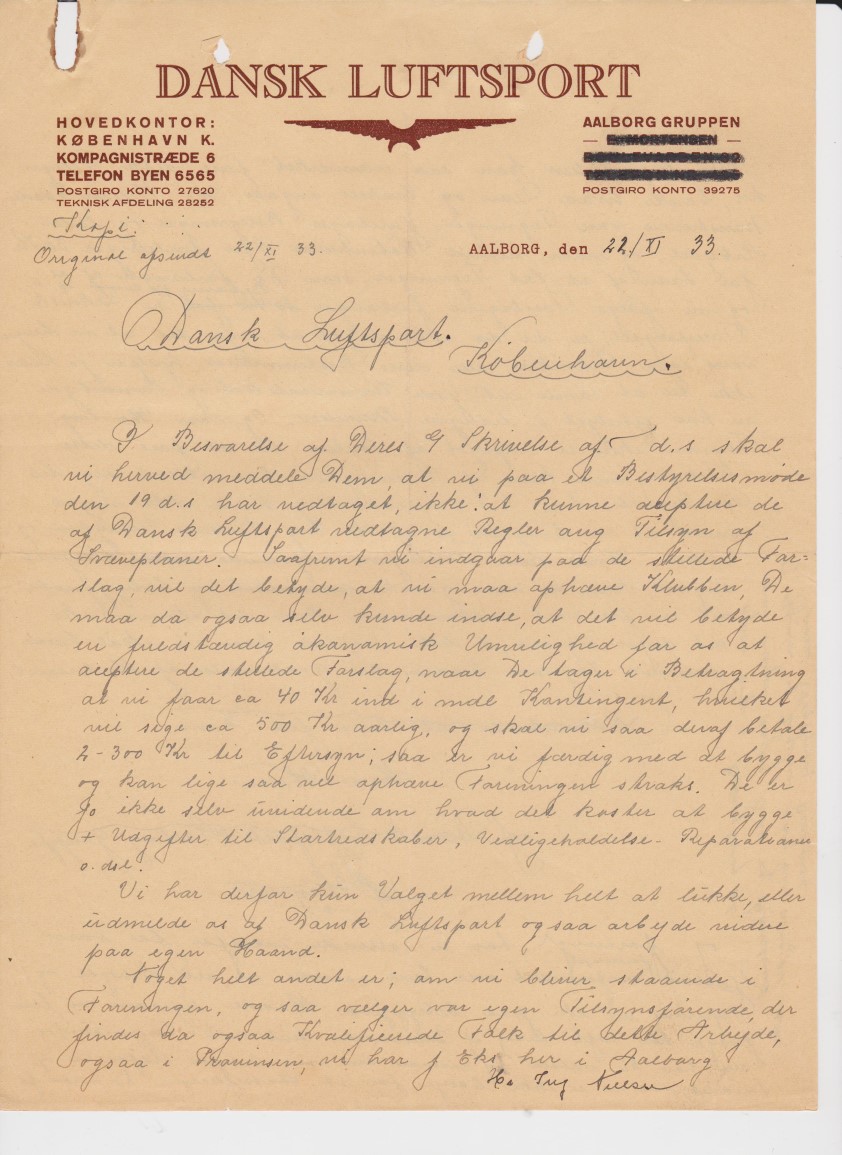 DANSK LUFTSPORT
HOVEDKONTOR:
KØBENHAVN K.
KOMPAGNISTRÆDE 6
TELEFON BYEN 6565
POSTGIRO KONTO 27620
TEKNISK AFDELING 28252
AALBORG GRUPPEN
— E. MORTENSEN —
BOULEVARDEN
TELEFON NR.
POSTGIRO KONTO 39275
Kopi.
Original afsendt 22/XI 33.
AALBORG, den 22/XI 33.
Dansk Luftsport.
København.
I Besvarelse af Deres Skrivelse af d.s skal
vi herved meddele Dem, at vi paa et Bestyrelsesmøde
den 19 d.s har vedtaget, ikke: at kunne aceptere de
af Dansk Luftsport vedtagne Regler ang Tilsyn af
Svæveplaner. Saafremt vi indgaar paa de stillede For=
slag, vil det betyde, at vi maa ophæve Klubben, De
maa da ogsaa selv kunde indse, at det vil betyde
en fuldstændig økonomisk Umulighed for os at
aceptere de stillede Forslag, naar De tager i Betragtning
at vi faar ca 40 Kr ind i mdl Kontingent, hvilket
vil sige ca 500 Kr aarlig, og skal vi saa deraf betale
2-300 Kr til Eftersyn; saa er vi færdig med at bygge
og kan lige saa vel ophæve Foreningen straks. De er
jo ikke selv uvidende om hvad det koster at bygge
+ Udgifter til Startredskaber, Vedligeholdelse - Reparationer
o. dsl.
Vi har derfor kun Valget mellem helt at lukke, eller
udmelde os af Dansk Luftsport og saa arbejde videre
paa egen Haand.
Noget helt andet er; om vi bliver staaende i
Foreningen, og saa vælger vor egen Tilsynsførende, der
findes da ogsaa Kvalificerede Folk til dette Arbejde,
ogsaa i Provinsen, vi har f Eks her i Aalborg
Hr Ing Nielsen